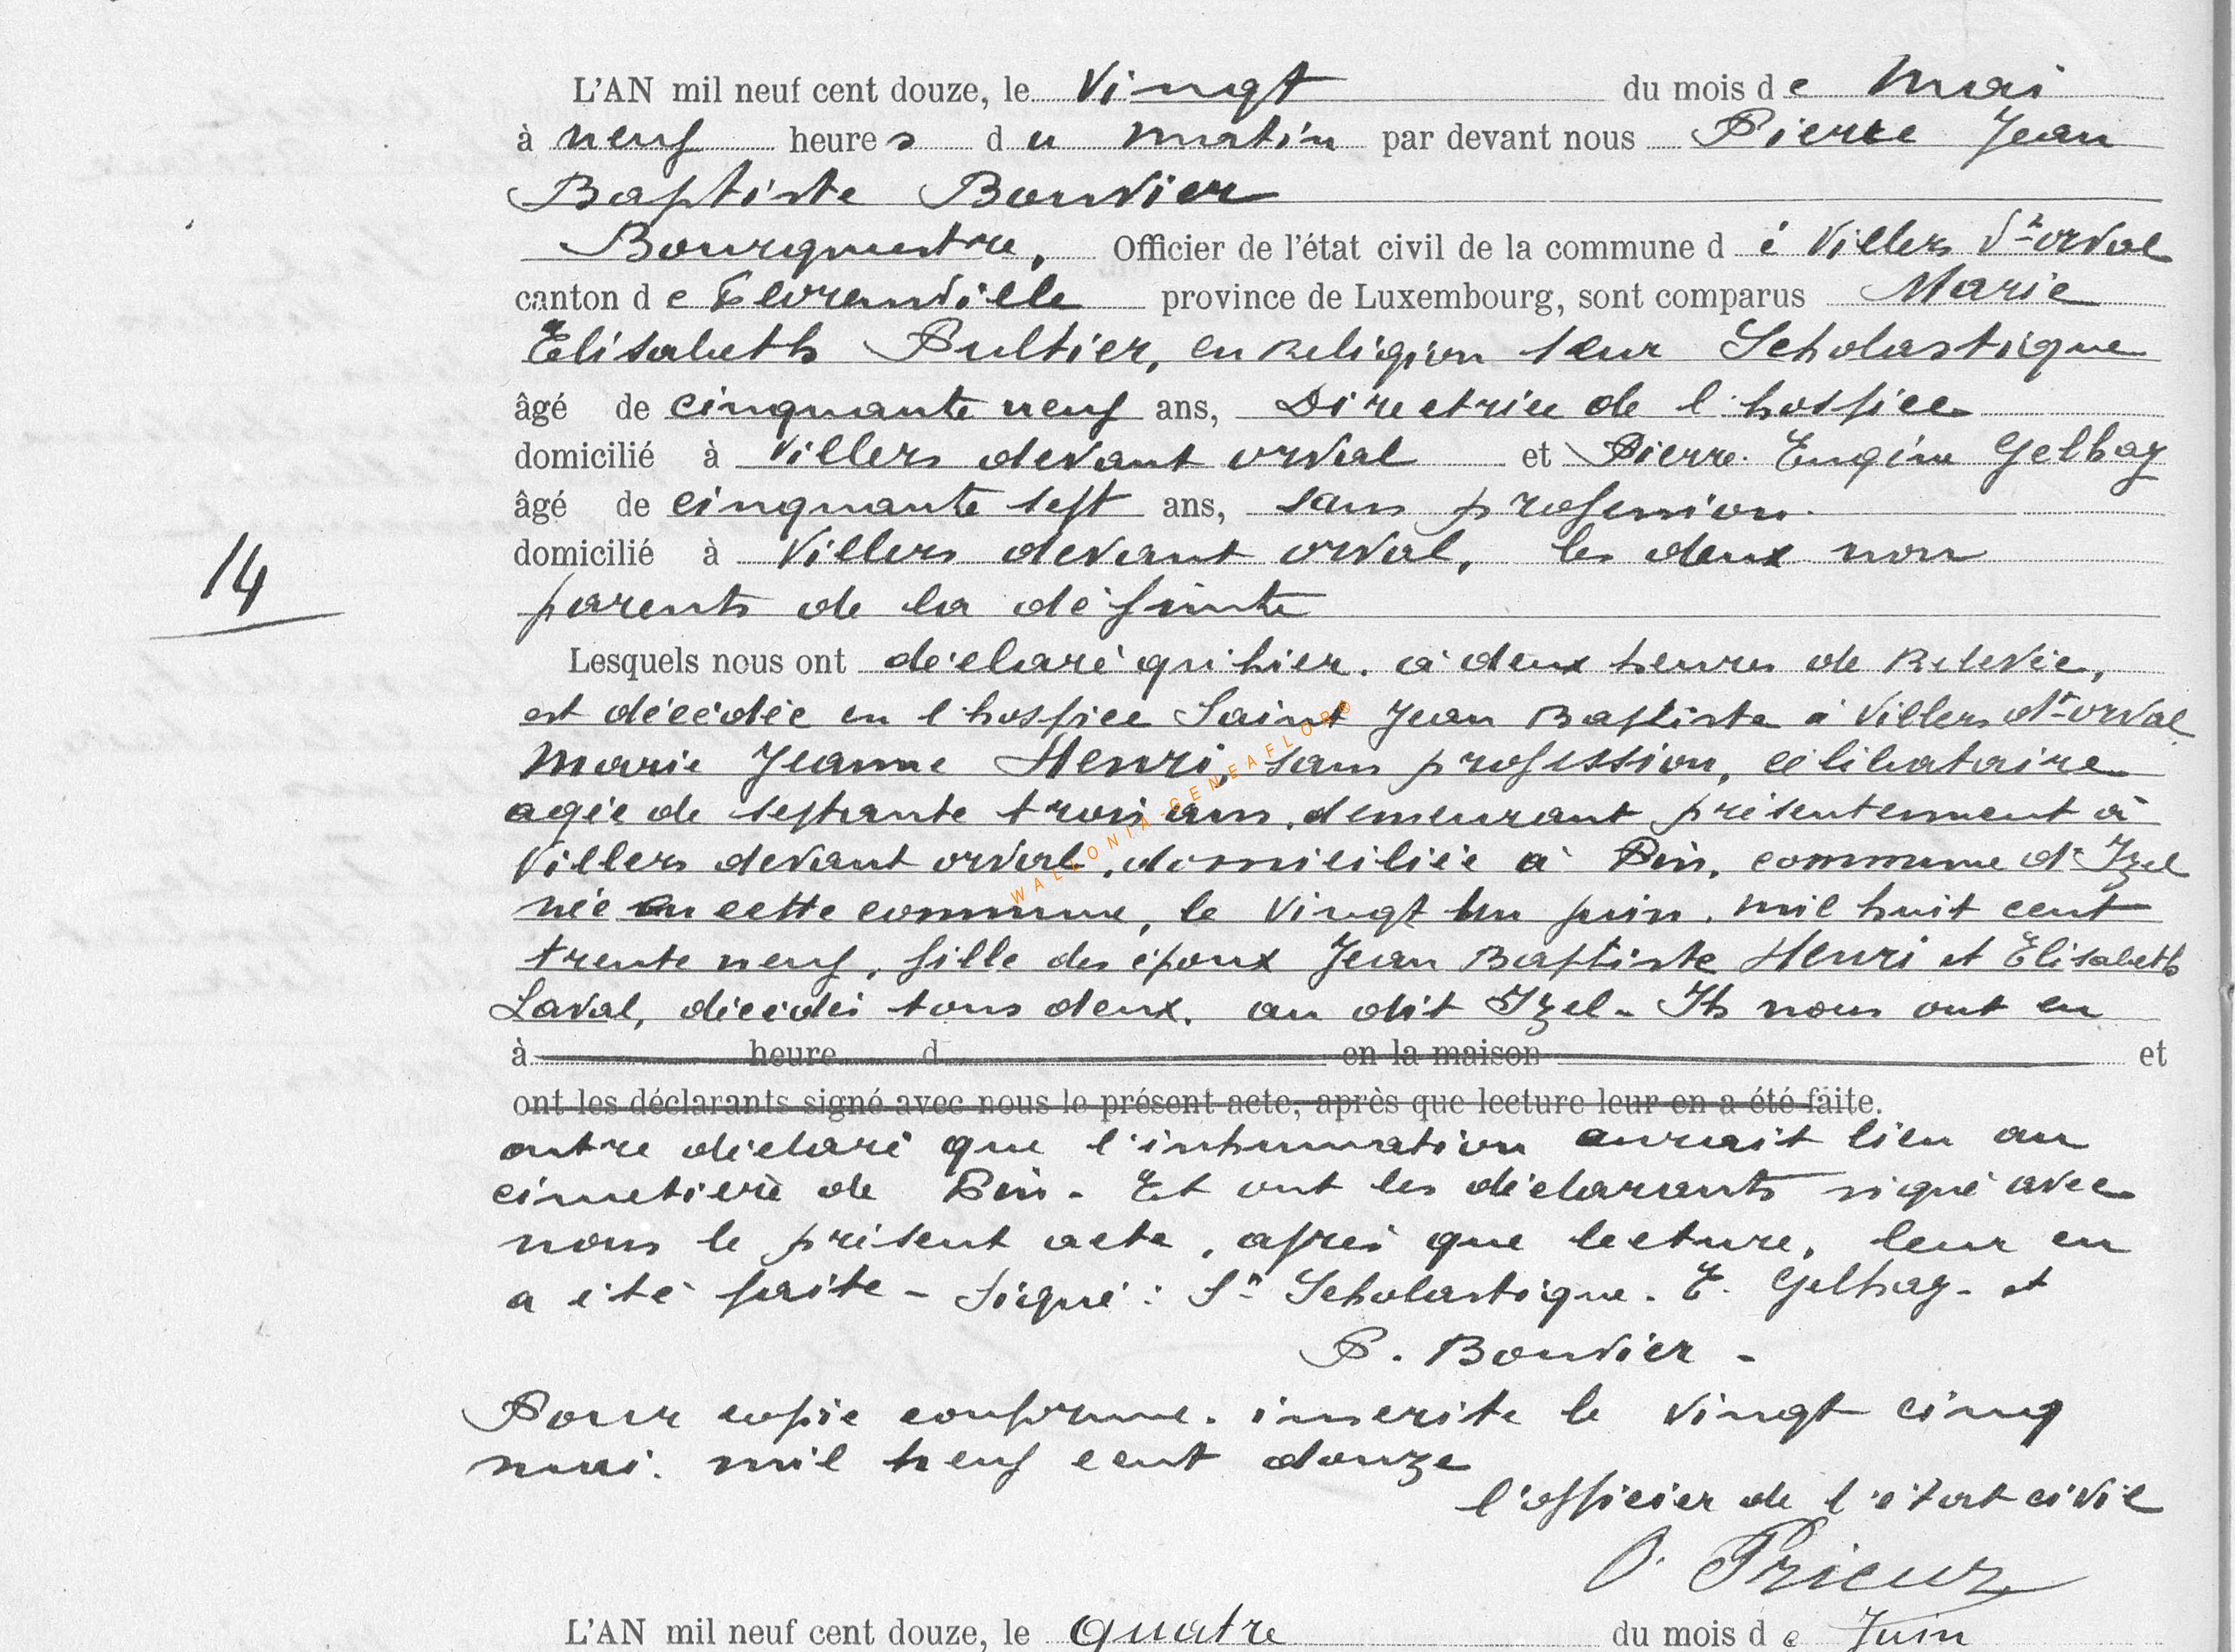 L'AN mil neuf cent douze, le Vingt du mois de Mai
à neuf heures du matin par devant nous Pierre Jean
Baptiste Bouvier
Bourgmestre, Officier de l'état civil de la commune d é Villers dt orval
canton de Florenville province de Luxembourg, sont comparus Marie
Elisabeth Pultier, en Religion seur Scholastique
âgé de cinquante neuf ans, Directrice de l'hospice
domicilié à Villers devant orval et Pierre Eugène Gelhay
âgé de cinquante sept ans, sans profession.
domicilié à Villers devant orval, les deux non
14
parents de la défunte
Lesquels nous ont déclaré qu'hier. à deux heures de Relevée,
est décédée en l'hospice Saint Jean Baptiste à Villers dt orval
Marie Jeanne Henri, sans profession, célibataire
agée de septante trois ans, demeurant présentement à
Villers devant orval, domiciliée à Pin, commune d'Izel
née en cette commune, le Vingt un juin, mil huit cent
trente neuf, fille des époux Jean Baptiste Henri et Elisabeth
Laval, décédés tous deux, au dit Izel - Ils nous ont en
à heure d en la maison et
ont les déclarants signé avec nous le présent acte, après que lecture leur en a été faite.
outre déclaré que l'inhumation aurait lieu au
cimetière de Pin - Et ont les déclarants signé avec
nous le présent acte, après que lecture, leur en
a été faite - Signé : Sr Scholastique - E. Gelhay - et
P. Bouvier -
Pour copie conforme. inscrite le vingt cinq
mai. mil neuf cent douze
l'officier de l'état civil
Prieur
L'AN mil neuf cent douze, le Quatre du mois de Juin
WALLONIA GENEAFLORE